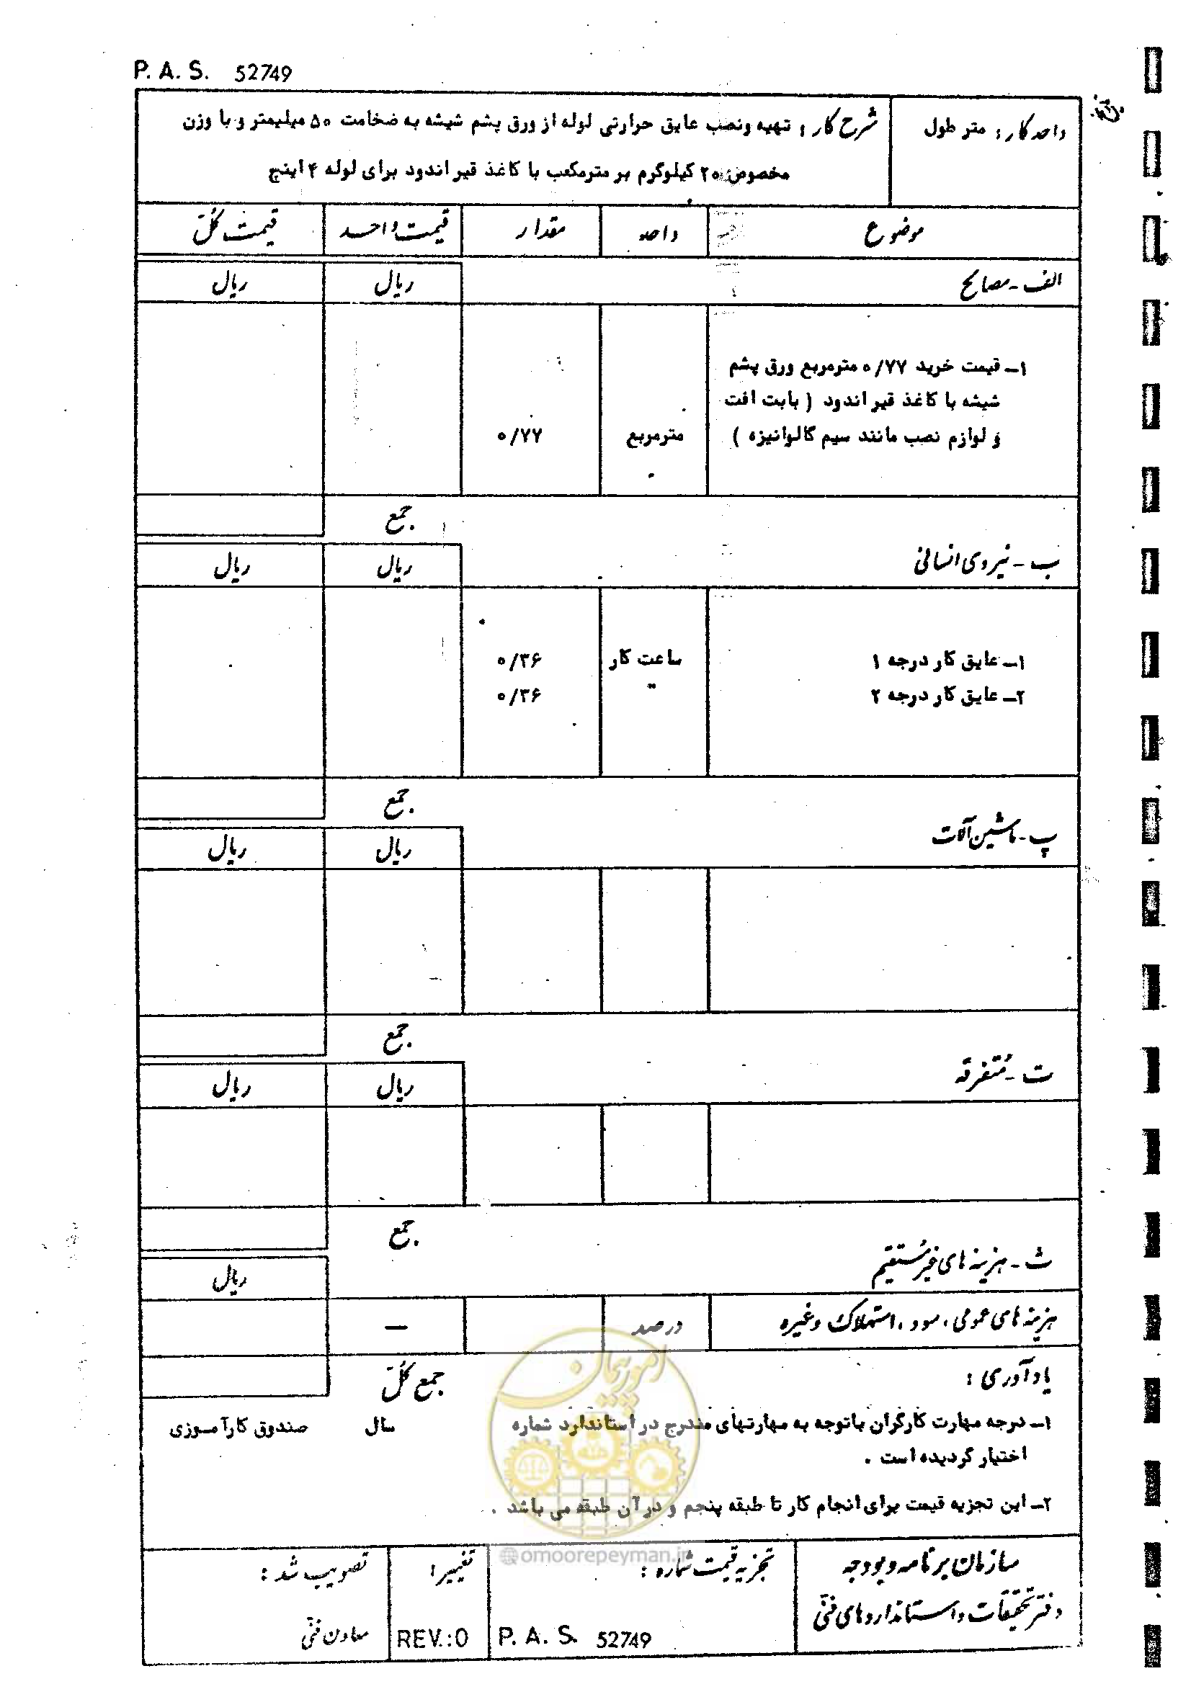 P. A. S. 52749
واحد کار : متر طول
شرح کار : تهیه ونصب عایق حرارتی لوله از ورق پشم شیشه به ضخامت ۵۰ میلیمتر و با وزن
مخصوص ۲۰ کیلوگرم بر مترمکعب با کاغذ قیر اندود برای لوله ۴ اینچ
موضوع واحد مقدار قیمت واحد قیمت کل
الف - مصالح ریال ریال
۱- قیمت خرید ۰/۷۷ مترمربع ورق پشم
شیشه با کاغذ قیر اندود ( بابت افت
و لوازم نصب مانند سیم گالوانیزه ) مترمربع ۰/۷۷
جمع
ب - نیروی انسانی ریال ریال
۱- عایق کار درجه ۱ ساعت کار ۰/۳۶
۲- عایق کار درجه ۲ " ۰/۳۶
جمع
پ - ماشین آلات ریال ریال
جمع
ت - متفرقه ریال ریال
جمع
ث - هزینه های غیرمستقیم ریال
هزینه های عمومی ، سود ، استهلاک وغیره درصد —
یادآوری : جمع کل
۱- درجه مهارت کارگران باتوجه به مهارتهای مندرج در استاندارد شماره سال صندوق کارآموزی
اختیار گردیده است .
۲- این تجزیه قیمت برای انجام کار تا طبقه پنجم و در آن طبقه می باشد .
امور پیمان
@omoorepeyman.ir
سازمان برنامه و بودجه
دفتر تحقیقات و استانداردهای فنی
تجزیه قیمت شماره :
P. A. S. 52749
تغییر :
REV.:0
تصویب شد :
معاون فنی